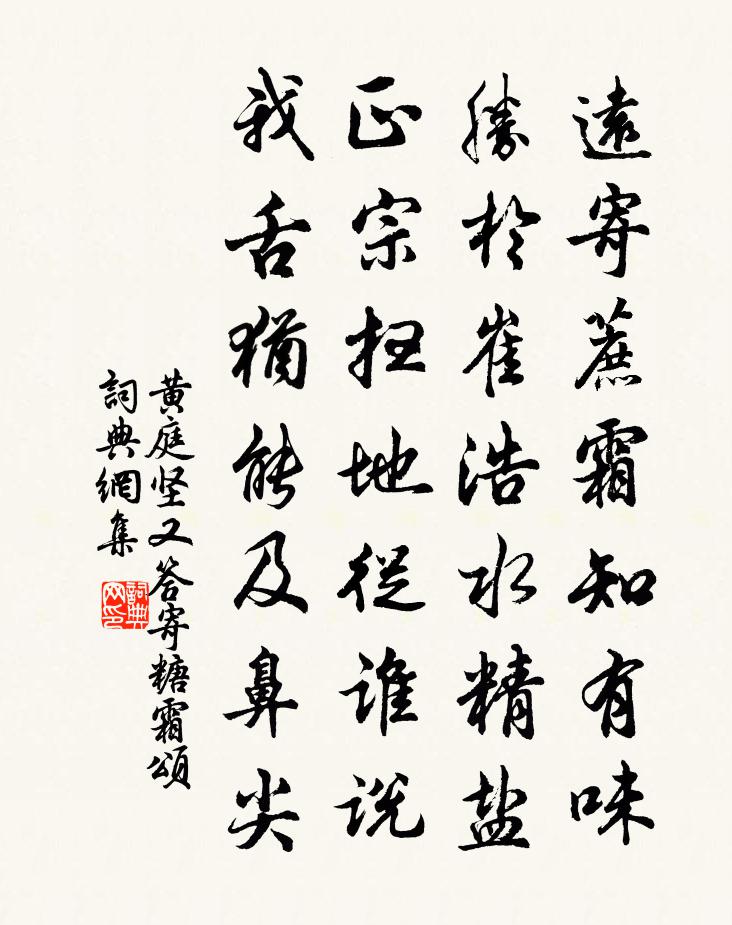 遠寄蔗霜知有味
勝於崔浩水精盐
正宗扫地從谁説
我舌猶能及鼻尖
黄庭坚又答寄糖霜頌
詞典網集
詞典网印